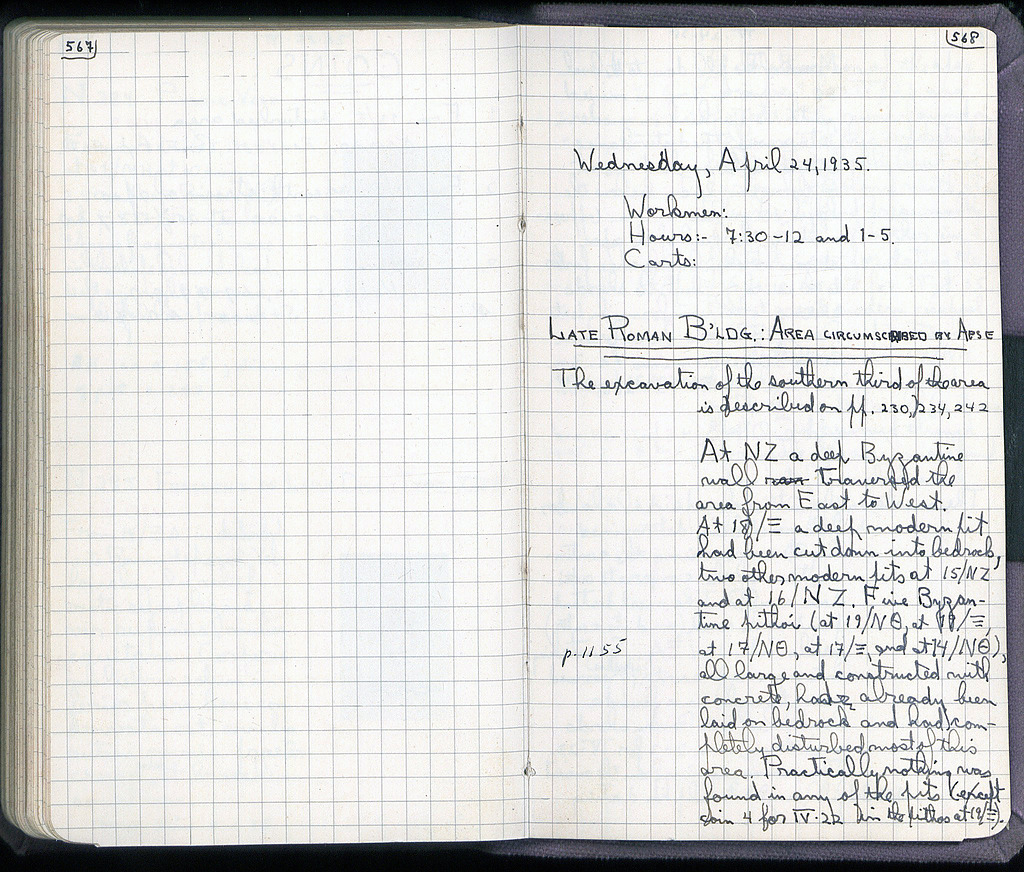 567
568
Wednesday, April 24, 1935.
Workmen:
Hours:- 7:30-12 and 1-5.
Carts:
LATE ROMAN B'LDG.: AREA CIRCUMSCRIBED BY APSE
The excavation of the southern third of the area
is described on pp. 230, 234, 242
At NZ a deep Byzantine
wall traversed the
area from East to West.
At 18/Ξ a deep modern pit
had been cut down into bedrock,
two other modern pits at 15/NZ
and at 16/NZ. Five Byzan-
tine pithoi (at 19/NΘ, at 19/Ξ,
p. 1155
at 17/NΘ, at 17/Ξ, and at 14/NΘ),
all large and constructed with
concrete, had already been
laid on bedrock and had com-
pletely disturbed most of this
area. Practically nothing was
found in any of the pits (except
coin 4 for IV-22 in the pithos at 19/Ξ).